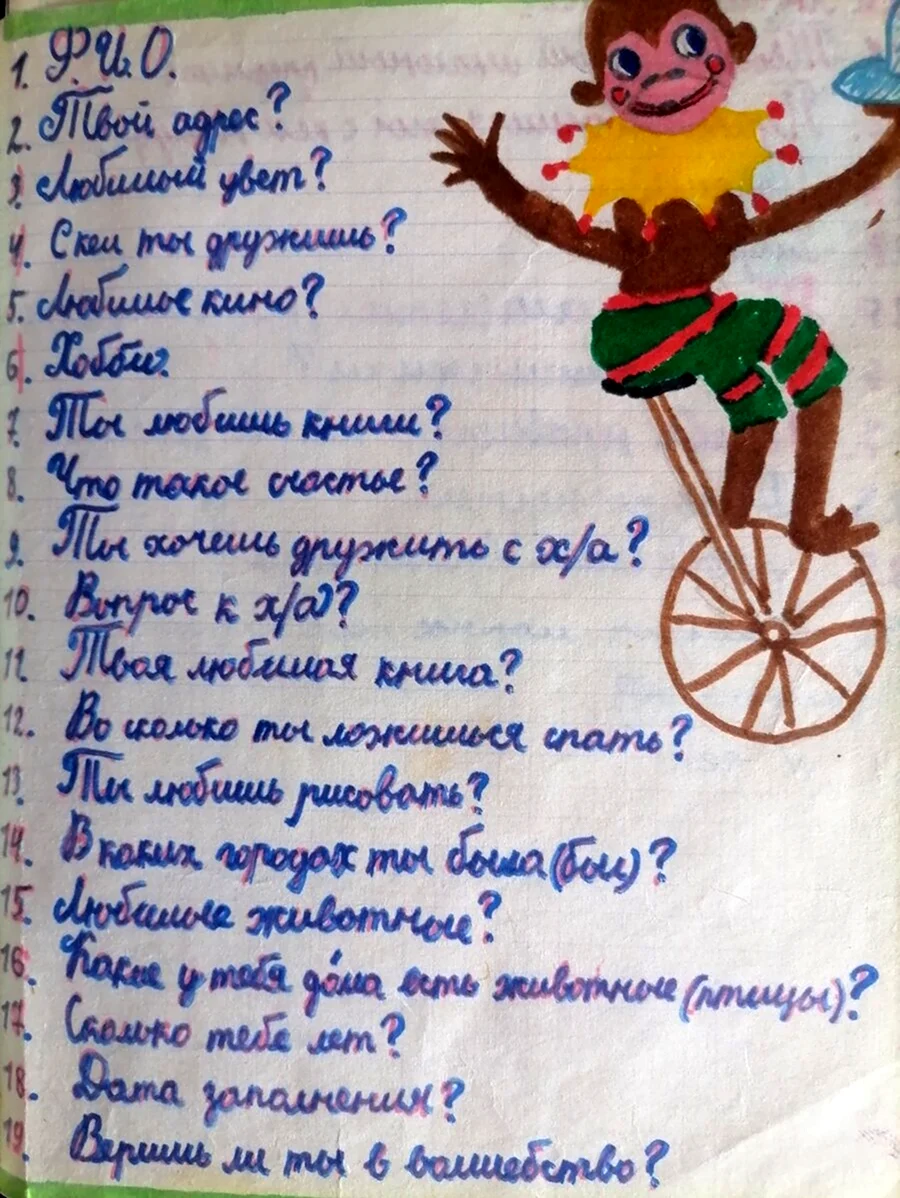 1. Ф.И.О.
2. Твой адрес?
3. Любимый цвет?
4. С кем ты дружишь?
5. Любимое кино?
6. Хобби.
7. Ты любишь книги?
8. Что такое счастье?
9. Ты хочешь дружить с х/а?
10. Вопрос к х/а??
11. Твоя любимая книга?
12. Во сколько ты ложишься спать?
13. Ты любишь рисовать?
14. В каких городах ты была(был)?
15. Любимые животные?
16. Какие у тебя до́ма есть животные (птицы)?
17. Сколько тебе лет?
18. Дата заполнения?
19. Веришь ли ты в волшебство?